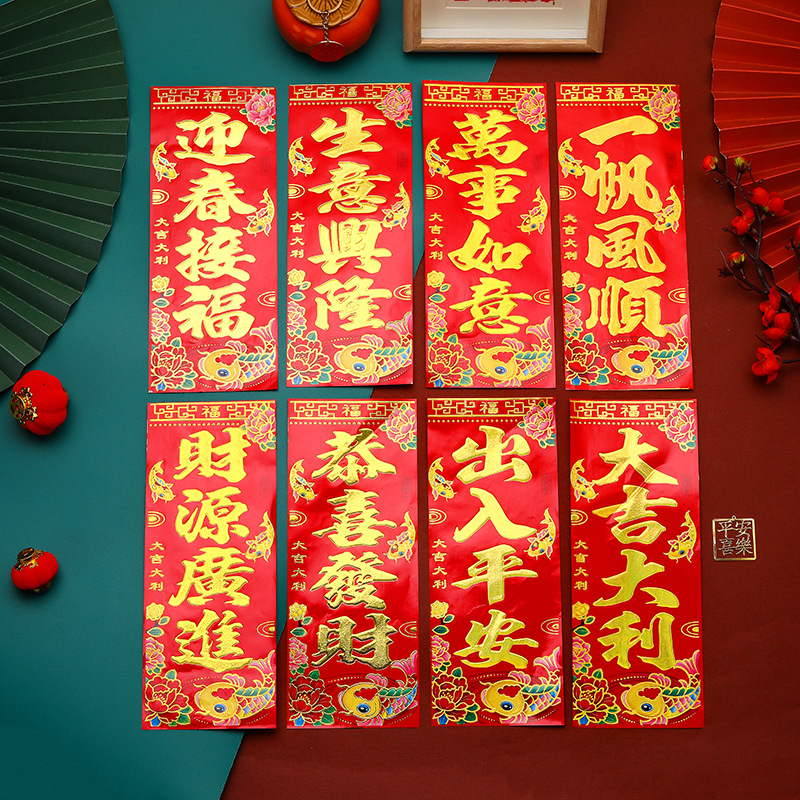 福
迎春接福
大吉大利
福
生意興隆
大吉大利
福
萬事如意
大吉大利
福
一帆風順
大吉大利
福
財源廣進
大吉大利
福
恭喜發財
大吉大利
福
出入平安
大吉大利
福
大吉大利
大吉大利
平安
喜樂